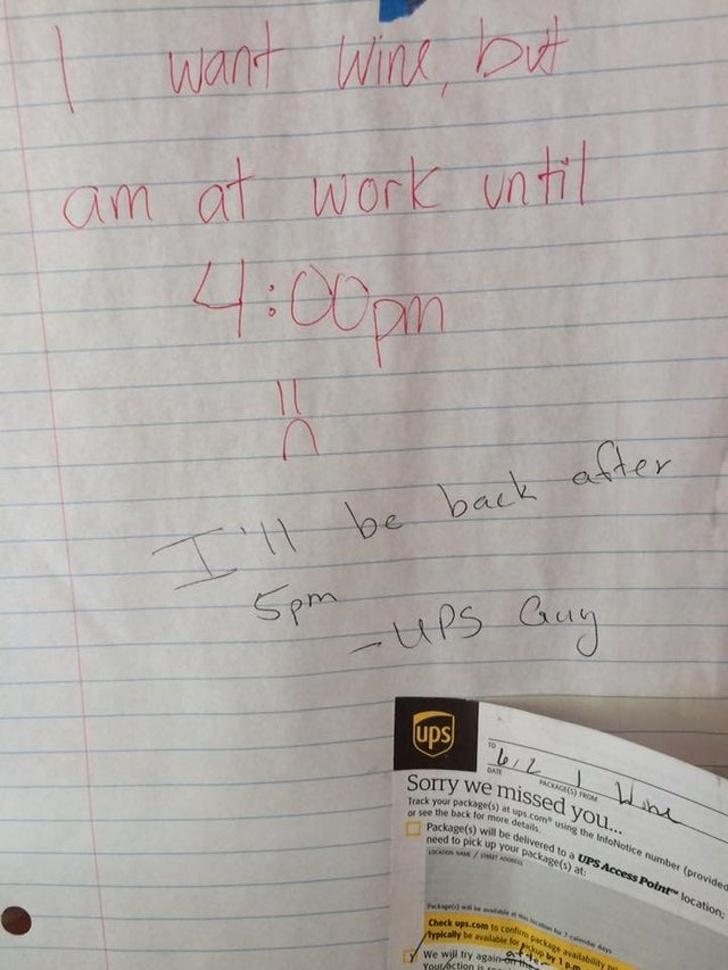 I want wine, but
am at work until
4:00pm
I'll be back after
5pm
- UPS Guy
ups
TO
6/2 1 Wine
DATE PACKAGE(S) FROM
Sorry we missed you...
Track your package(s) at ups.com® using the InfoNotice number (provided
or see the back for more details.
Package(s) will be delivered to a UPS Access Point™ location;
need to pick up your package(s) at:
LOCATION NAME / STREET ADDRESS
Package(s) will be available at this location for 7 calendar days
Check ups.com to confirm package availability
Typically be available for pickup by 1 p.m.
after
We will try again on the
Your action is